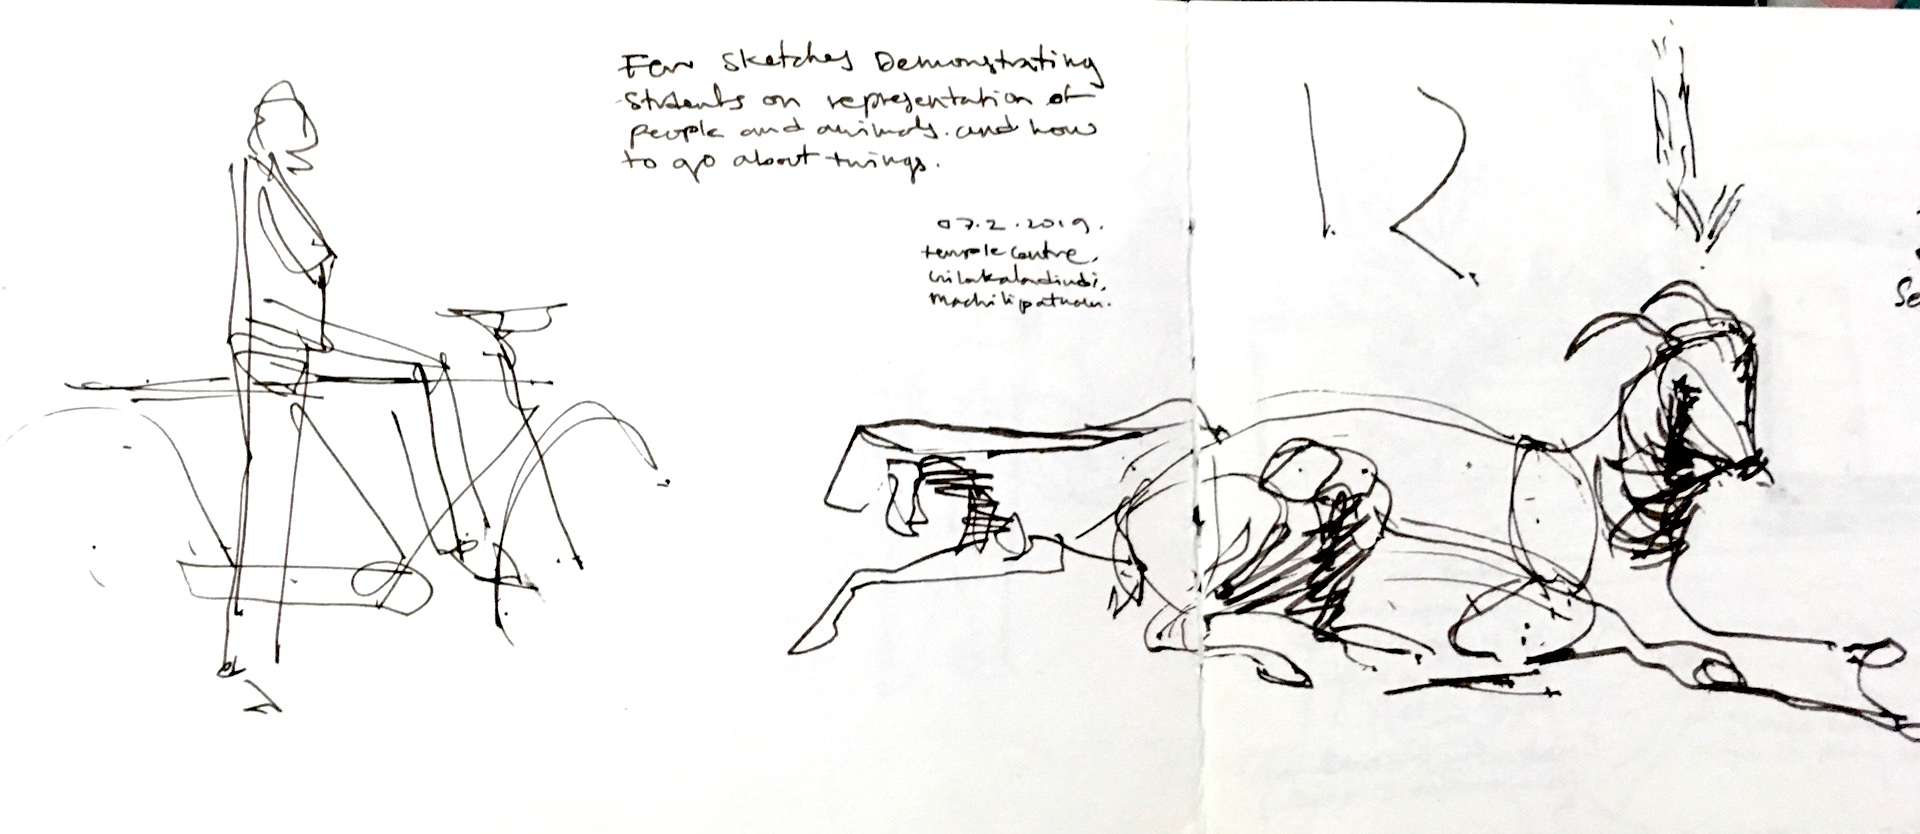 Few Sketches Demonstrating
Students on representation of
people and animals. and how
to go about things.
07.2.2019.
temple centre,
Chilakalandindi,
Machilipatnam.
Se